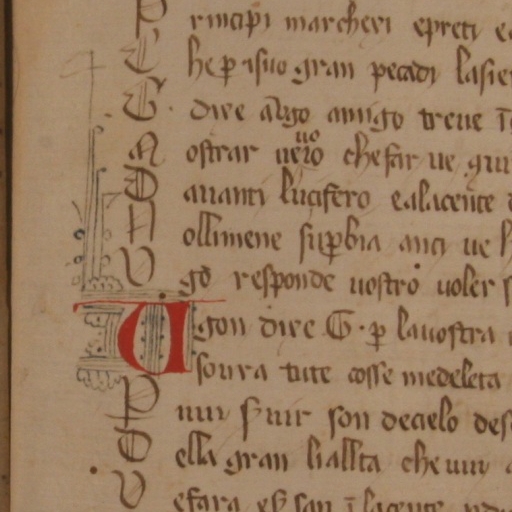 P rincipi marcheri epreti e
C he p isuo gran pecadi lasie
E dire algo amigo treue i
M ostrar uero che far ue qui
D auanti lucifero ealacente
N ollimene supbia anci ue
V go responde uostro uoler s
V gon dire G · p lauostra
soura tute cosse medeleta
P uui suir son decielo des
E lla gran liallta che uui
V efara